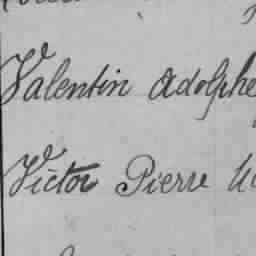 Valentin Adolphe
Victor Pierre